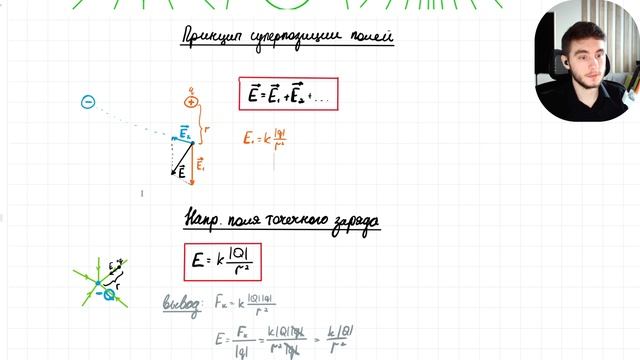 Принцип суперпозиции полей
q
−
+
E⃗ = E⃗₁ + E⃗₂ + ...
E⃗₂
r
E₁ = k |q|/r²
E⃗
E⃗₁
Напр. поля точечного заряда
E = k |Q|/r²
E
q
r
− Q
вывод: Fₖ = k |Q||q|/r²
E = Fₖ/|q| = k|Q||q|/r²|q| = k|Q|/r²